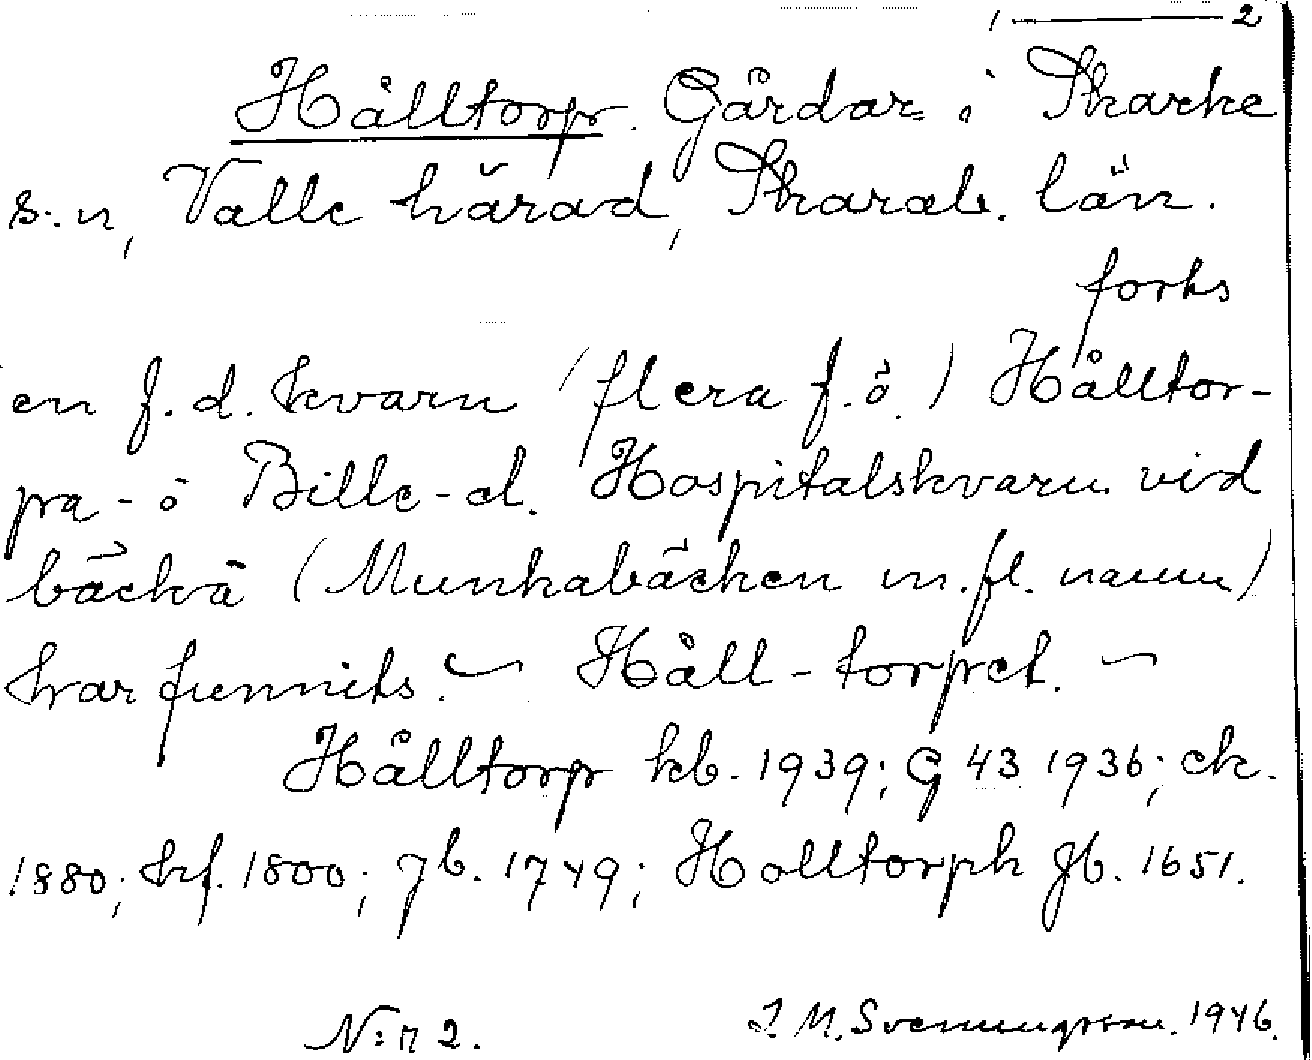 1 — 2
Hålltorp. Gårdar i Skarke
s:n, Valle härad, Skarab. län.
forts
en f.d. kvarn (flera f.ö.) Hålltor-
pa-ö Bille-al. Hospitalskvarn vid
bäckå (Munkabäcken m.fl. namn)
har funnits. — Håll-torpet. —
Hålltorp kb. 1939; G 43 1936; ek.
1880; kf. 1800; jb. 1749; Holltorph Jb. 1651.
N:r 2. J. M. Svenungsson. 1946.